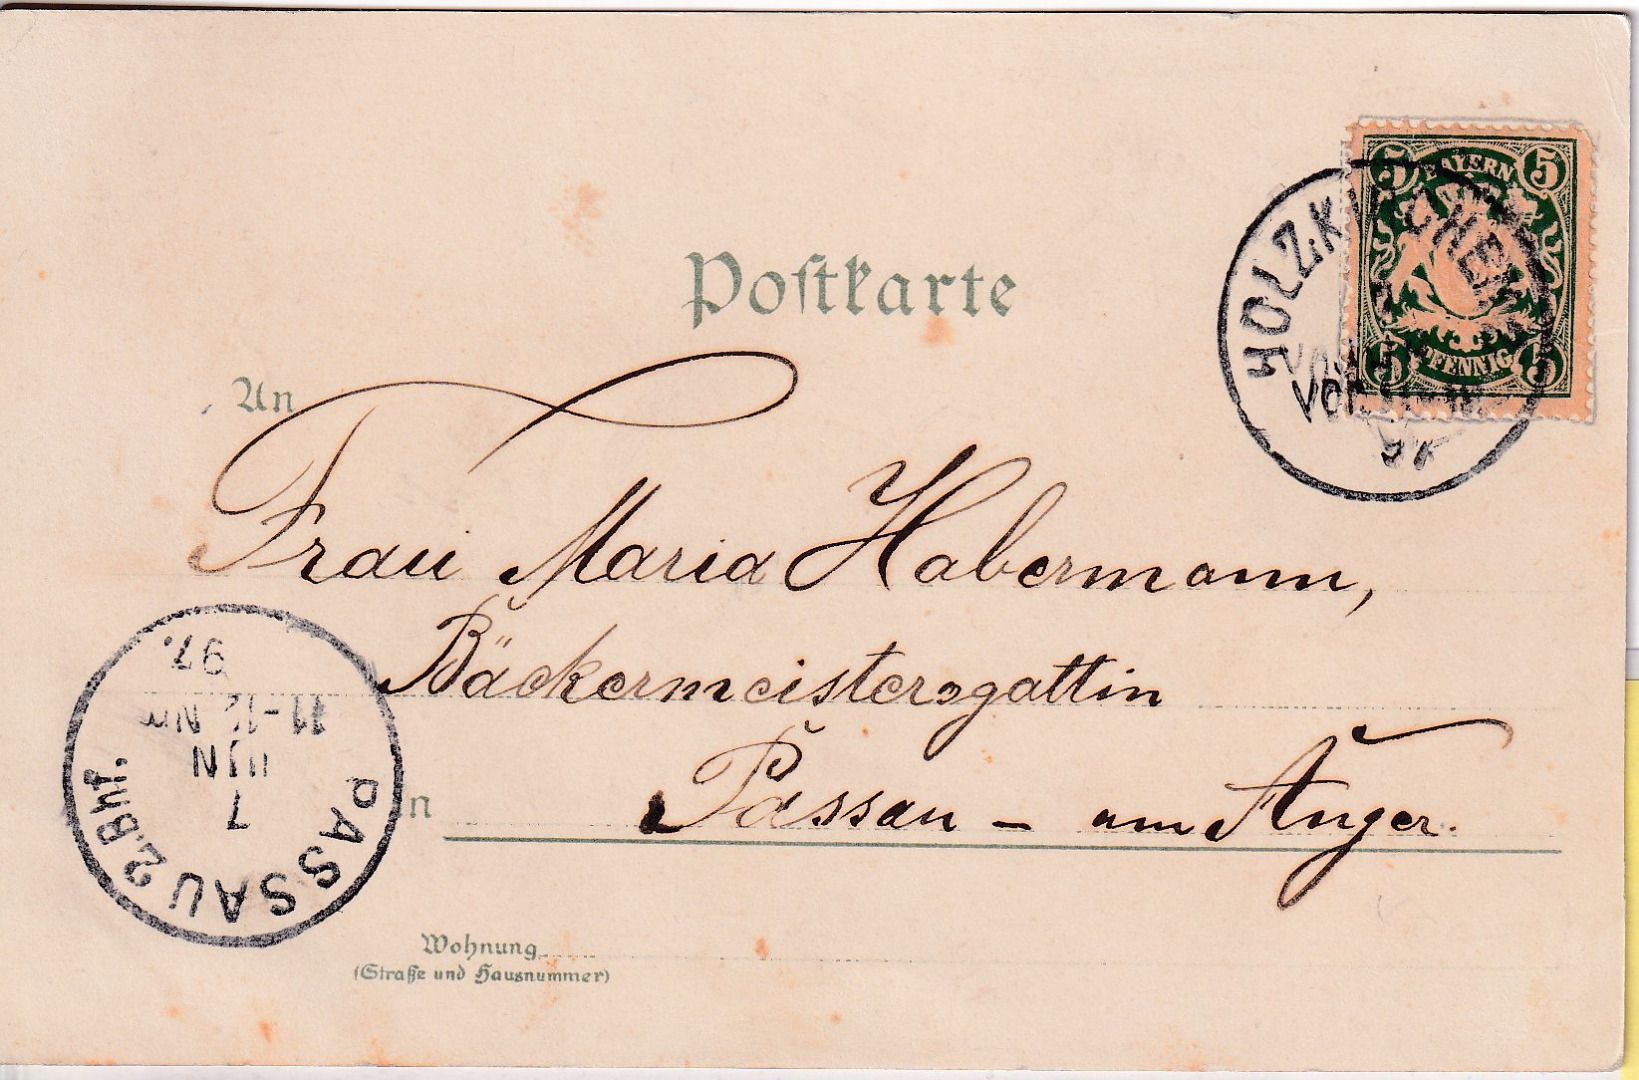 Postkarte
5 BAYERN 5
5 PFENNIG 5
HOLZKIRCHEN
An
Frau Maria Habermann,
Bäckermeistersgattin
in Passau – am Anger.
PASSAU 2.Bhf.
7
JUN
11-12 Nm
97.
Wohnung
(Straße und Hausnummer)